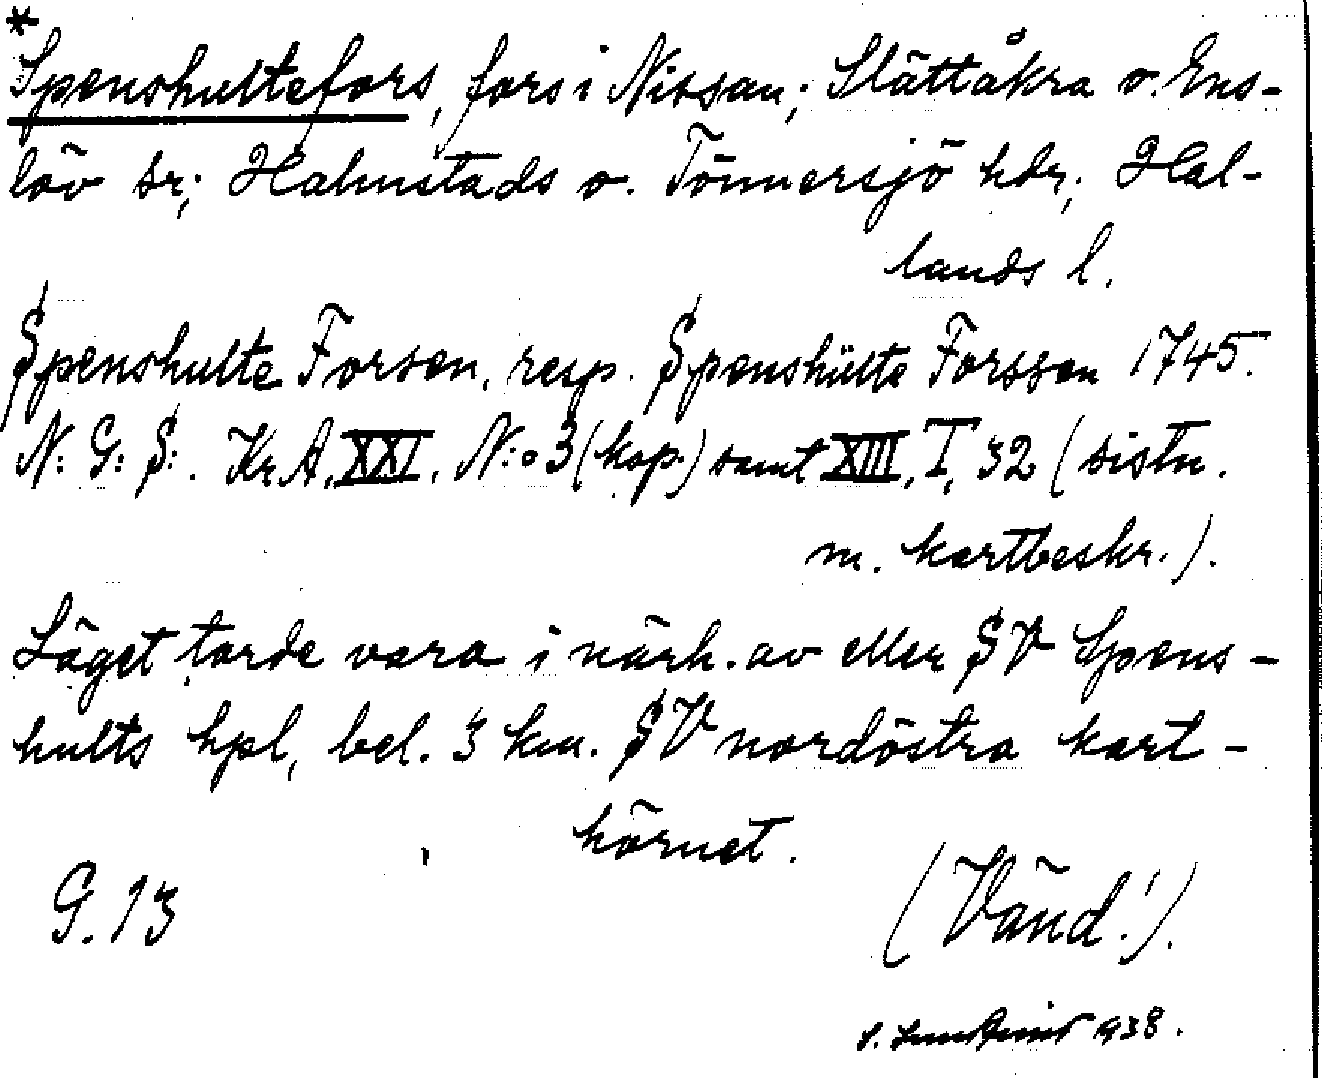 *
Spenshultefors, fors i Nissan; Slättåkra o. Ens-
löv sr; Halmstads o. Tönnersjö hdr; Hal-
lands l.
Spenshulte Forsen, resp. Spenshülte Forssen 1745.
N: G: S:. Kr.A. XXI. N:o 3 (kop.) samt XIII, I, 32 (sistn.
m. kartbeskr.).
Läget torde vara i närh. av eller SV Spens-
hults hpl, bel. 3 km. SV nordöstra kart-
hörnet.
G. 13
(Vänd!).
1938.